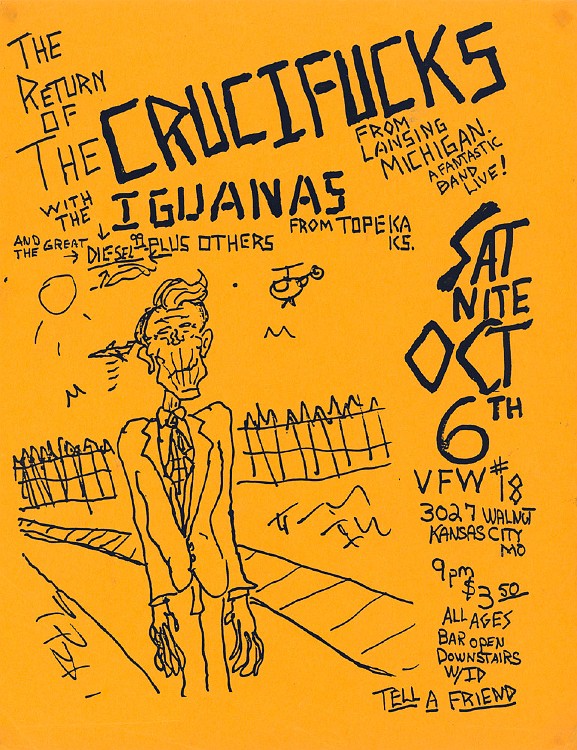 THE
RETURN
OF
THE CRUCIFUCKS
FROM
LANSING
MICHIGAN.
A FANTASTIC
BAND
LIVE!
WITH
THE
IGUANAS
FROM TOPEKA
KS.
AND THE GREAT
DIESEL PLUS OTHERS
SAT
NITE
OCT
6TH
VFW #18
3027 WALNUT
KANSAS CITY
MO
9pm
$3.50
ALL AGES
BAR OPEN
DOWNSTAIRS
W/ID
TELL A FRIEND